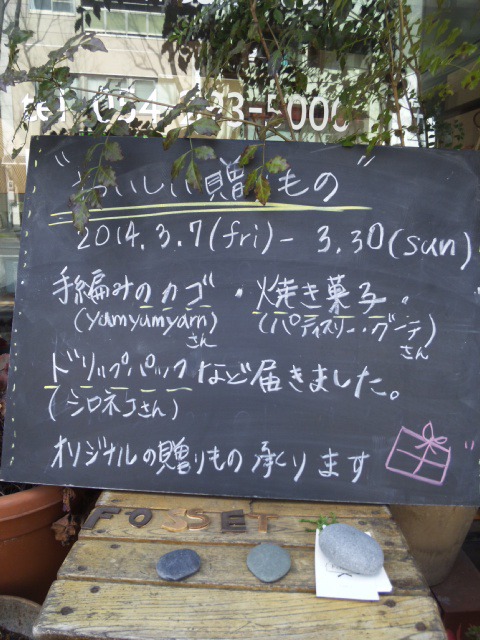 tel 054
3-5000
"おいしい贈りもの"
2014.3.7(fri)- 3.30(sun)
手編みのカゴ・焼き菓子・
(yumyumyarn)さん (パティスリー・グーテ)さん
ドリップパックなど届きました。
(シロネコさん)
オリジナルの贈りもの承ります
FOSSET